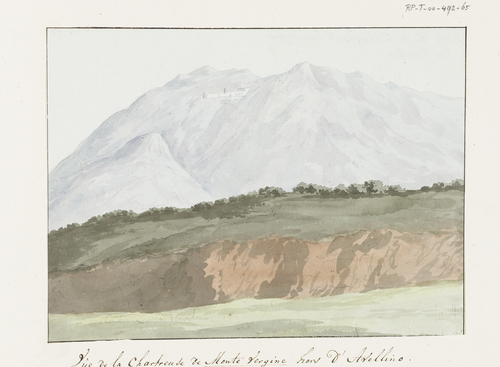 RP-T-00-492-65
Vüe de la Chartreuse de Monte Vergine hors D'Avellino.